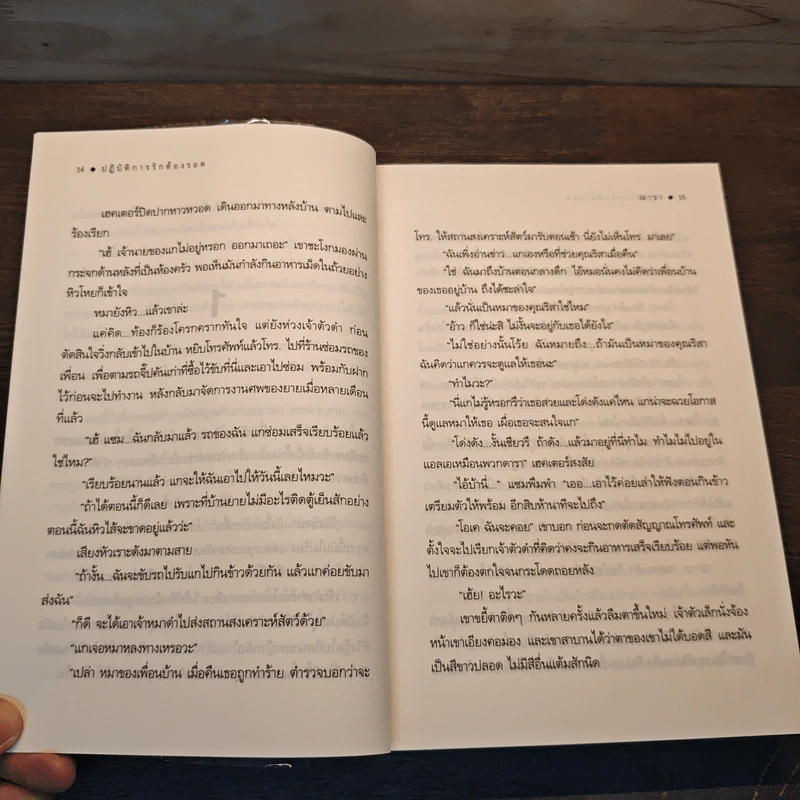 14 ● ปฏิบัติการรักต้องรอด
เฮคเตอร์ปิดปากหาวหวอด เดินออกมาทางหลังบ้าน ตามไปและ
ร้องเรียก
“เฮ้ เจ้านายของแกไม่อยู่หรอก ออกมาเถอะ” เขาชะโงกมองผ่าน
กระจกด้านหลังที่เป็นห้องครัว พอเห็นมันกำลังกินอาหารเม็ดในถ้วยอย่าง
หิวโหยก็เข้าใจ
หมายังหิว...แล้วเขาล่ะ
แค่คิด...ท้องก็ร้องโครกครากทันใจ แต่ยังห่วงเจ้าตัวดำ ก่อน
ตัดสินใจวิ่งกลับเข้าไปในบ้าน หยิบโทรศัพท์แล้วโทร. ไปที่ร้านซ่อมรถของ
เพื่อน เพื่อตามรถจี๊ปคันเก่าที่ซื้อไว้ขับที่นี่และเอาไปซ่อม พร้อมกับฝาก
ไว้ก่อนจะไปทำงาน หลังกลับมาจัดการงานศพของยายเมื่อหลายเดือน
ที่แล้ว
“เฮ้ แซม...ฉันกลับมาแล้ว รถของฉัน แกซ่อมเสร็จเรียบร้อยแล้ว
ใช่ไหม?”
“เรียบร้อยนานแล้ว แกจะให้ฉันเอาไปให้วันนี้เลยไหมวะ”
“ถ้าได้ตอนนี้ก็ดีเลย เพราะที่บ้านยายไม่มีอะไรติดตู้เย็นสักอย่าง
ตอนนี้ฉันหิวไส้จะขาดอยู่แล้วว่ะ”
เสียงหัวเราะดังมาตามสาย
“ถ้างั้น...ฉันจะขับรถไปรับแกไปกินข้าวด้วยกัน แล้วแกค่อยขับมา
ส่งฉัน”
“ก็ดี จะได้เอาเจ้าหมาดำไปส่งสถานสงเคราะห์สัตว์ด้วย”
“แกเจอหมาหลงทางเหรอวะ”
“เปล่า หมาของเพื่อนบ้าน เมื่อคืนเธอถูกทำร้าย ตำรวจบอกว่าจะ
ณาชา ● 15
โทร. ให้สถานสงเคราะห์สัตว์มารับตอนเช้า นี่ยังไม่เห็นโทร. มาเลย”
“ฉันเพิ่งอ่านข่าว...แกเองหรือที่ช่วยคุณริสาเมื่อคืน”
“ใช่ ฉันมาถึงบ้านตอนกลางดึก ไอ้หมอนั่นคงไม่คิดว่าเพื่อนบ้าน
ของเธออยู่บ้าน ถึงได้ชะล่าใจ”
“แล้วนั่นเป็นหมาของคุณริสาใช่ไหม”
“อ้าว ก็ใช่น่ะสิ ไม่งั้นจะอยู่กับเธอได้ยังไง”
“ไม่ใช่อย่างนั้นโว้ย ฉันหมายถึง...ถ้ามันเป็นหมาของคุณริสา
ฉันคิดว่าแกควรจะดูแลให้เธอนะ”
“ทำไมวะ?”
“นี่แกไม่รู้หรอกรึว่าเธอสวยและโด่งดังแค่ไหน แกน่าจะฉวยโอกาส
นี้ดูแลหมาให้เธอ เผื่อเธอจะสนใจแก”
“โด่งดัง...งั้นเชียวรึ ถ้าดัง...แล้วมาอยู่ที่นี่ทำไม ทำไมไม่ไปอยู่ใน
แอลเอเหมือนพวกดารา” เฮคเตอร์สงสัย
“ไอ้บ้านี่...” แซมพึมพำ “เออ...เอาไว้ค่อยเล่าให้ฟังตอนกินข้าว
เตรียมตัวให้พร้อม อีกสิบห้านาทีจะไปถึง”
“โอเค ฉันจะคอย” เขาบอก ก่อนจะกดตัดสัญญาณโทรศัพท์ และ
ตั้งใจจะไปเรียกเจ้าตัวดำที่คิดว่าคงจะกินอาหารเสร็จเรียบร้อย แต่พอหัน
ไปเขาก็ต้องตกใจจนกระโดดถอยหลัง
“เฮ้ย! อะไรวะ”
เขาขยี้ตาติดๆ กันหลายครั้งแล้วลืมตาขึ้นใหม่ เจ้าตัวเล็กนั่งจ้อง
หน้าเขาเอียงคอมอง และเขาสาบานได้ว่าตาของเขาไม่ได้บอดสี และมัน
เป็นสีขาวปลอด ไม่มีสีอื่นแต้มสักนิด